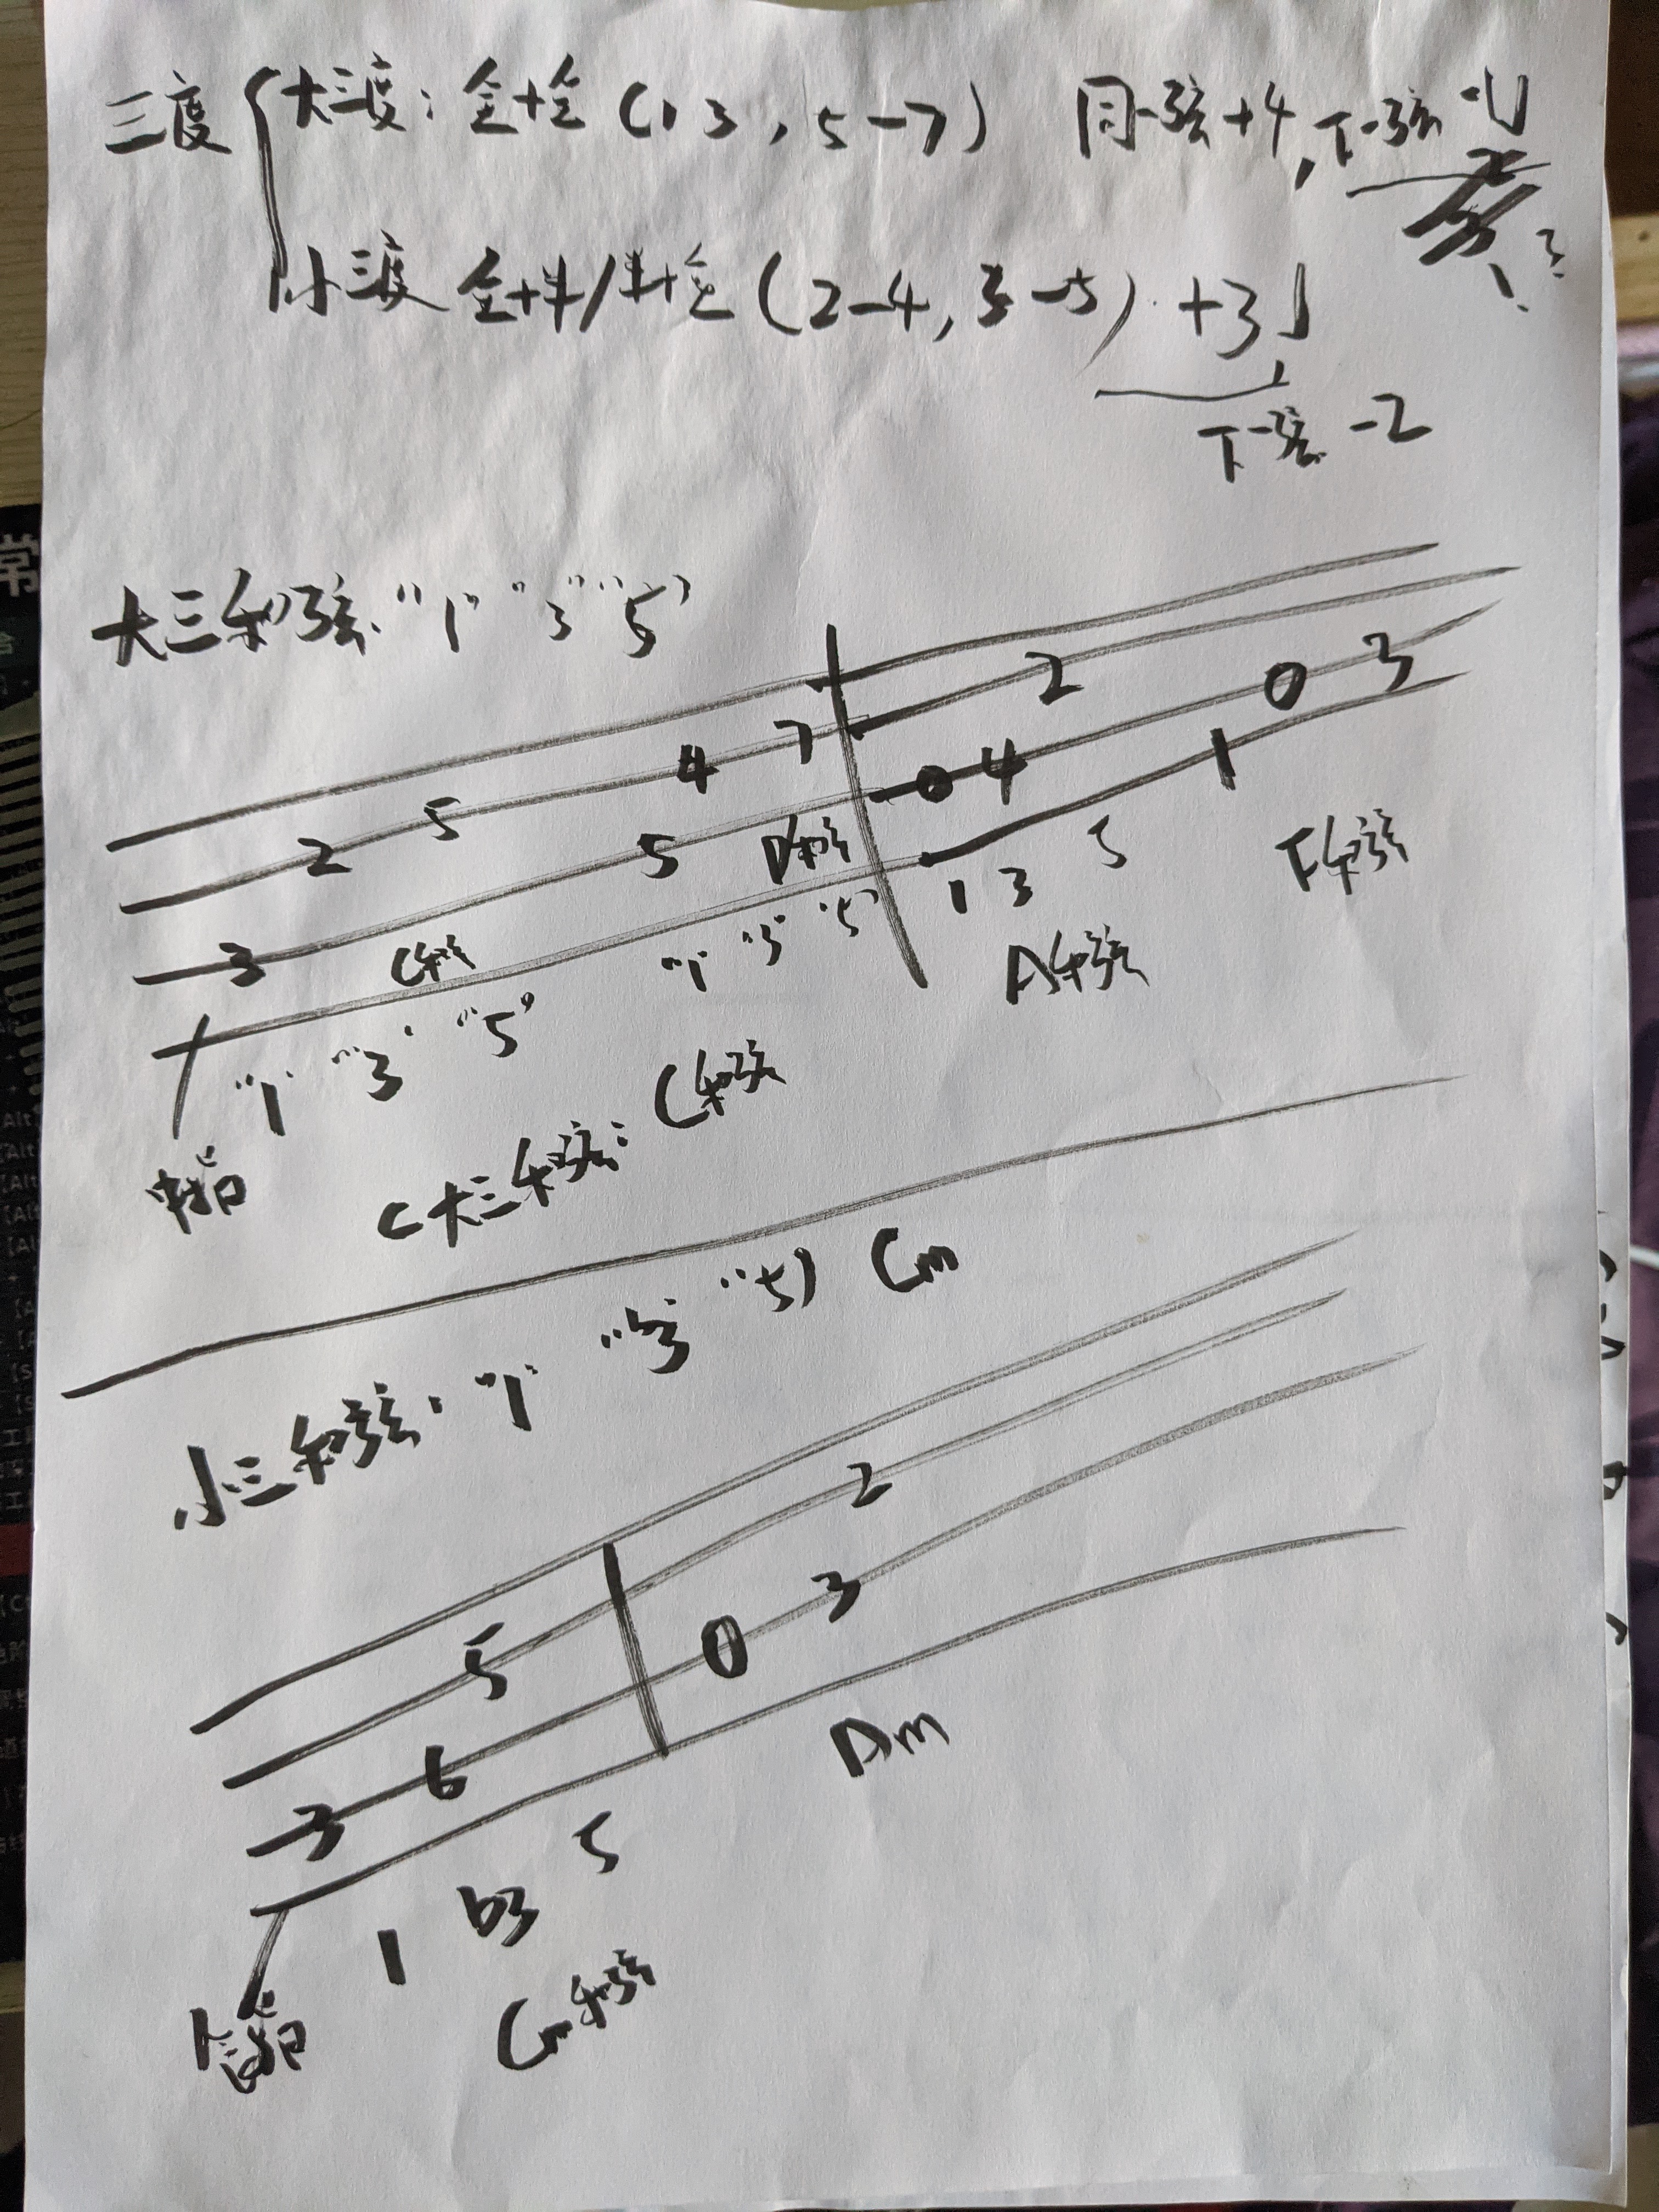 三度 大三度：全+全（1 3，5-7） 同弦+4，下一弦-1
小三度 全+半/半+全（2-4，3-5） +3
下一弦 -2
大三和弦 "1" "3" "5"
2
0 3
4 7
0 4
1
2 5
5 D和弦
1 3 5 F和弦
3 C和弦
"1" "3" "5"
A和弦
"1" "3" "5"
中指
C大三和弦：C和弦
小三和弦："1" "b3" "5" Cm
2
5
0 3
3 6
Am
1 b3 5
食指
Cm和弦